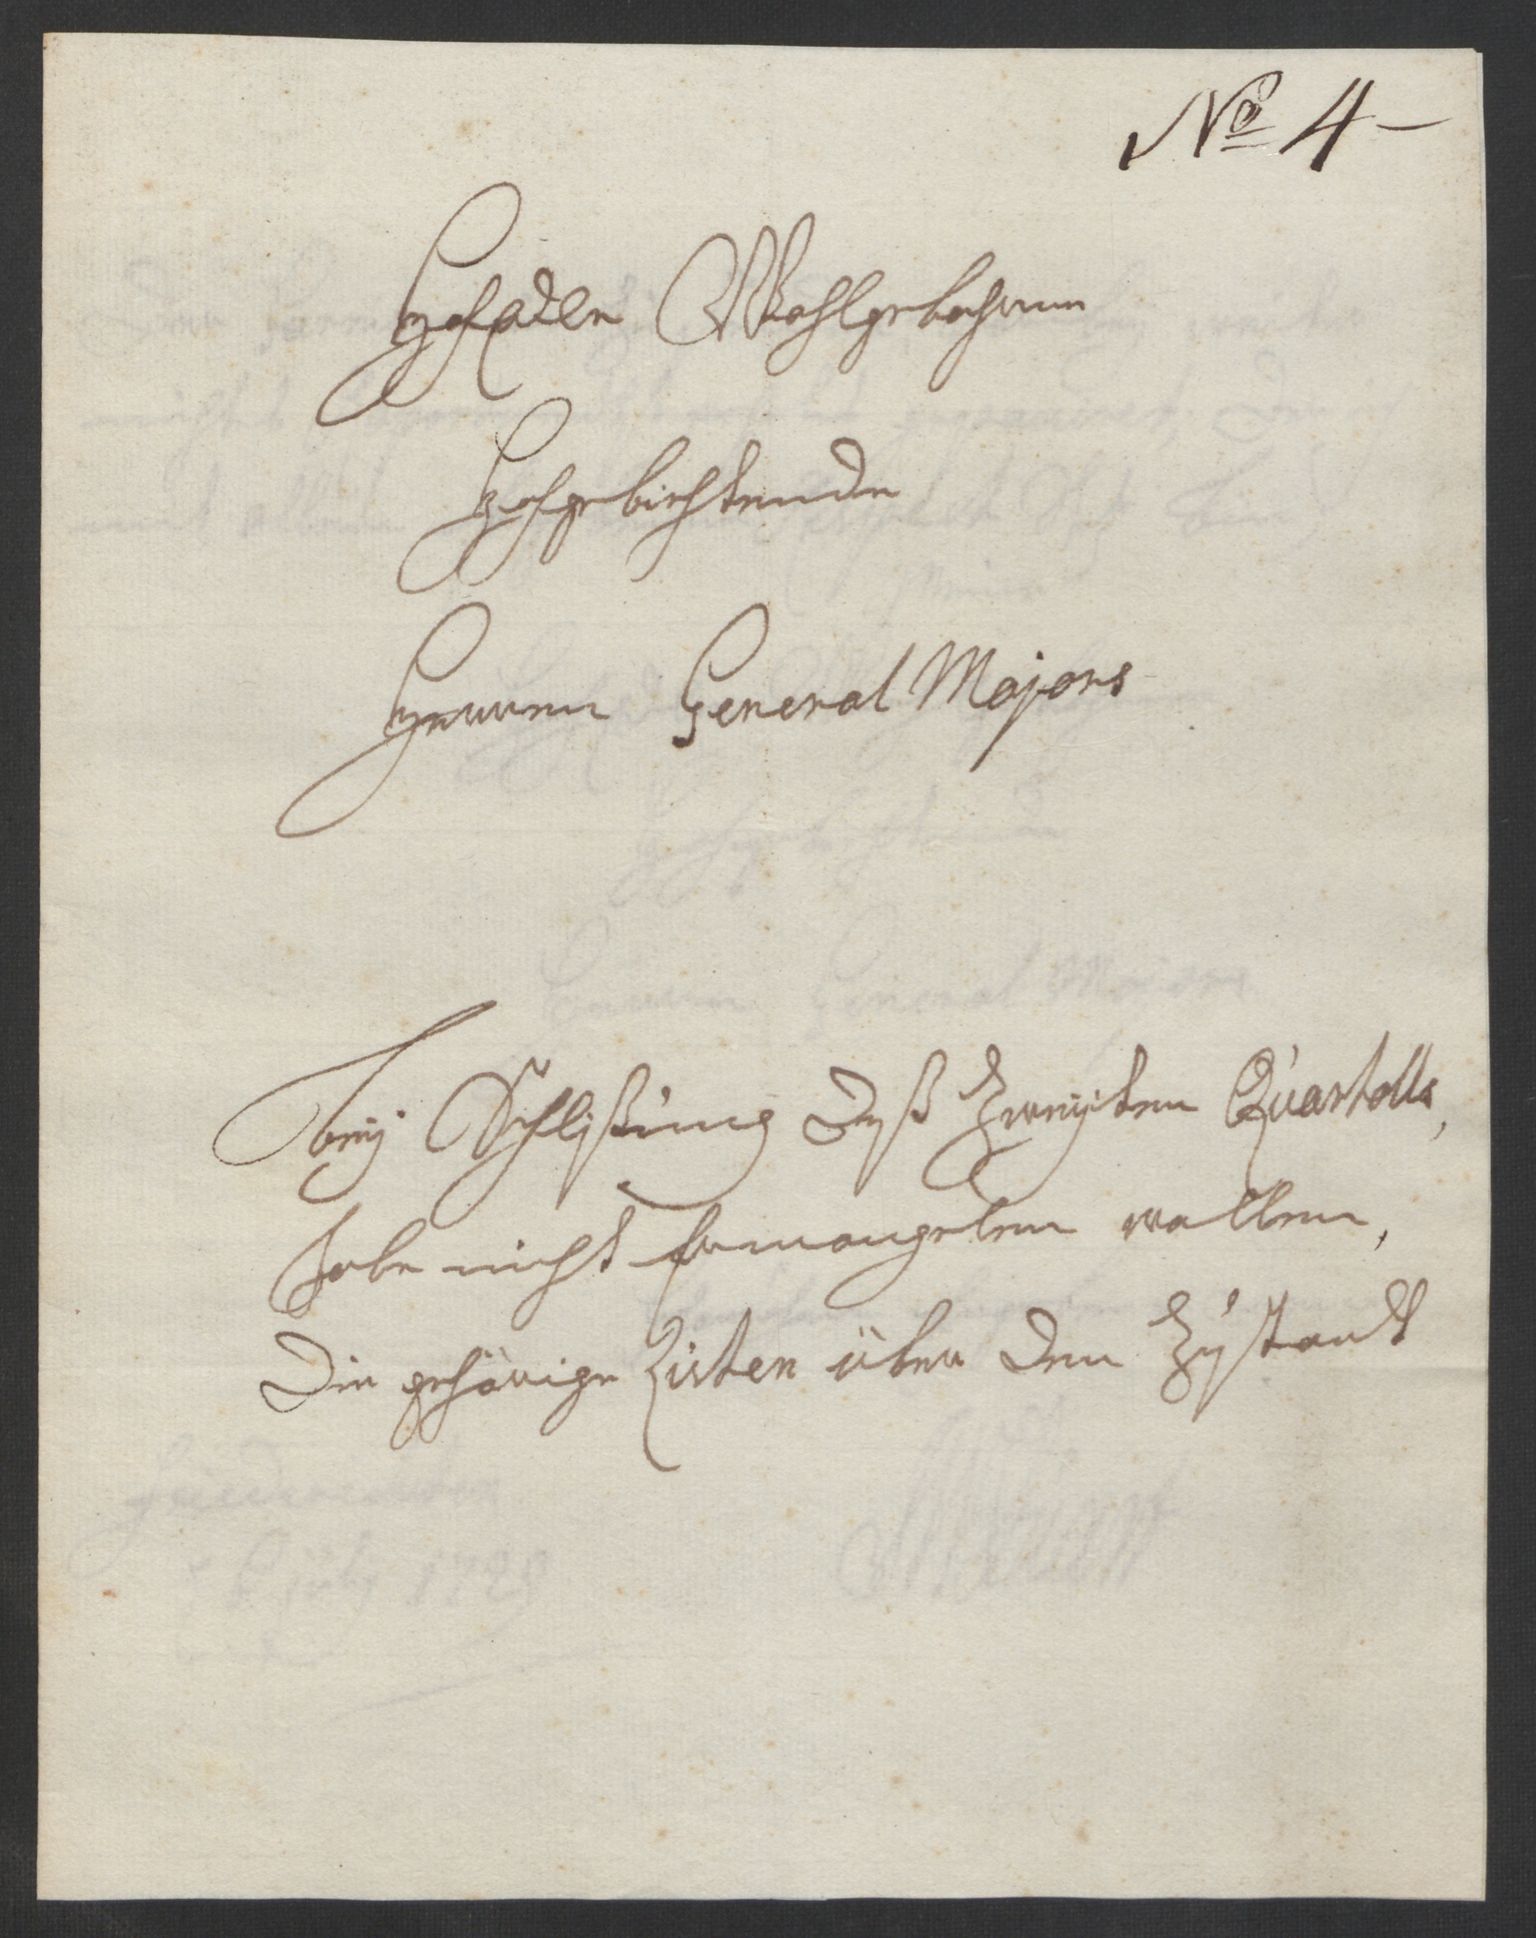 No 4
HochEdler Wohlgebohrner
Hochgebiethender
Herren General Majors
beÿ Schlißung deß Zweÿten Quartalls,
habe nicht ermangelen wollen,
die gehörige Listen über den Zustandt